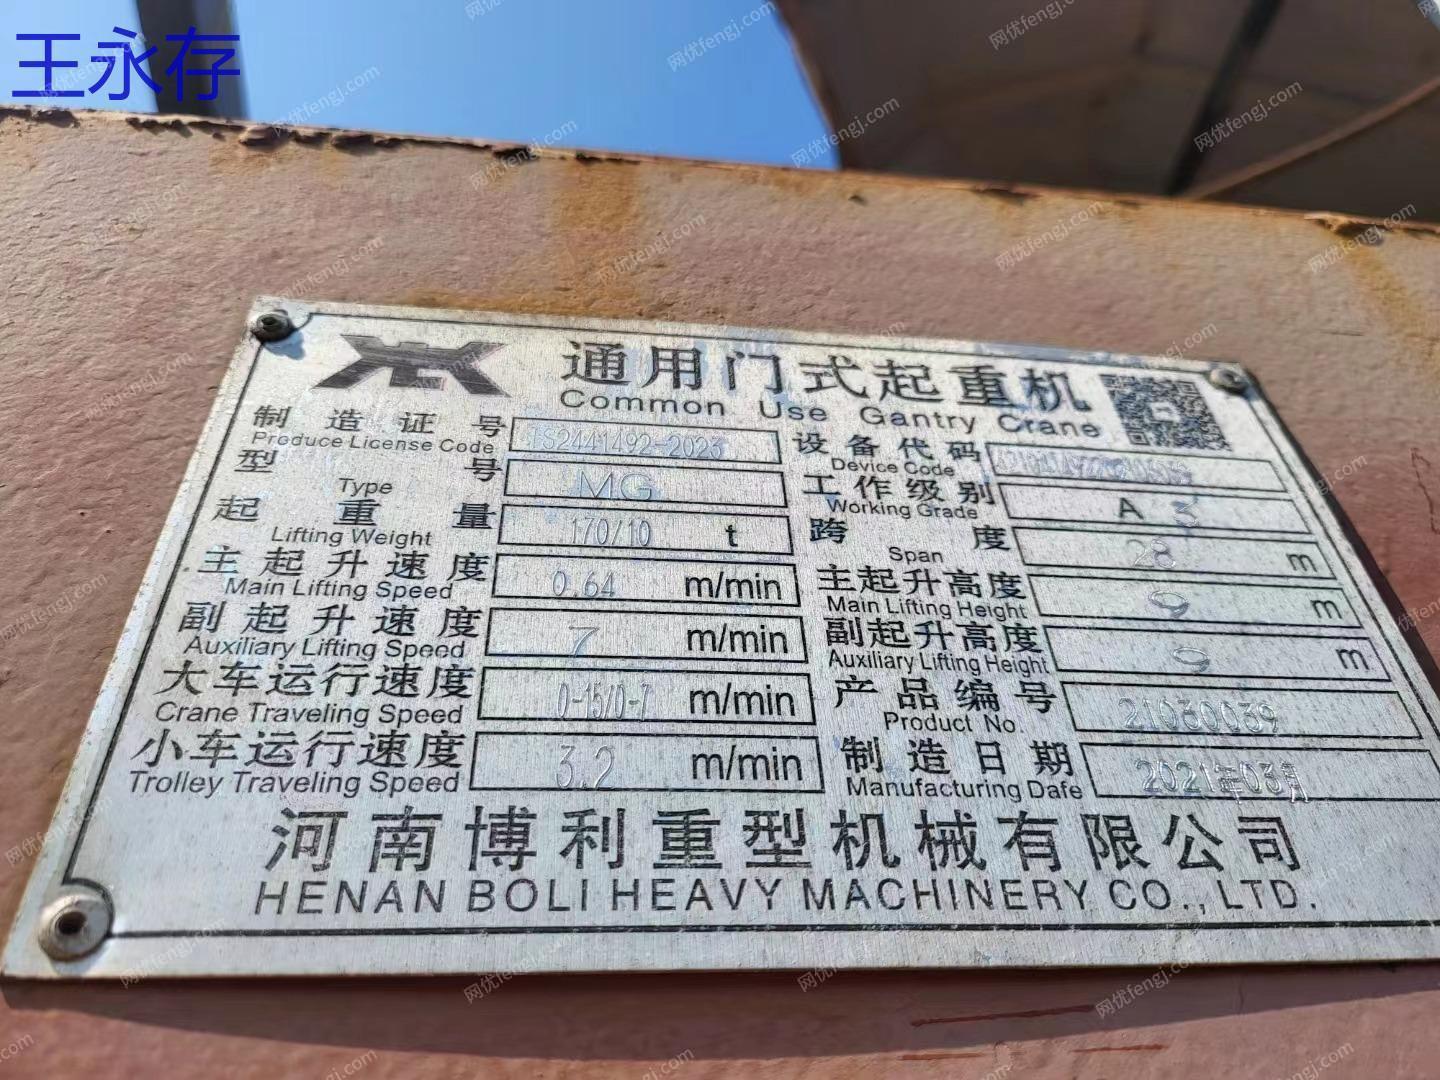 王永存
通用门式起重机
Common Use Gantry Crane
制造证号 TS2441492-2023 设备代码
Produce License Code Device Code
型号 MG 工作级别 A 3
Type Working Grade
起重量 170/10 t 跨度 28 m
Lifting Weight Span
主起升速度 0.64 m/min 主起升高度 9 m
Main Lifting Speed Main Lifting Height
副起升速度 7 m/min 副起升高度 9 m
Auxiliary Lifting Speed Auxiliary Lifting Height
大车运行速度 0-15/0-7 m/min 产品编号 21030039
Crane Traveling Speed Product No.
小车运行速度 3.2 m/min 制造日期 2021年03月
Trolley Traveling Speed Manufacturing Dafe
河南博利重型机械有限公司
HENAN BOLI HEAVY MACHINERY CO., LTD.
网优fengj.com